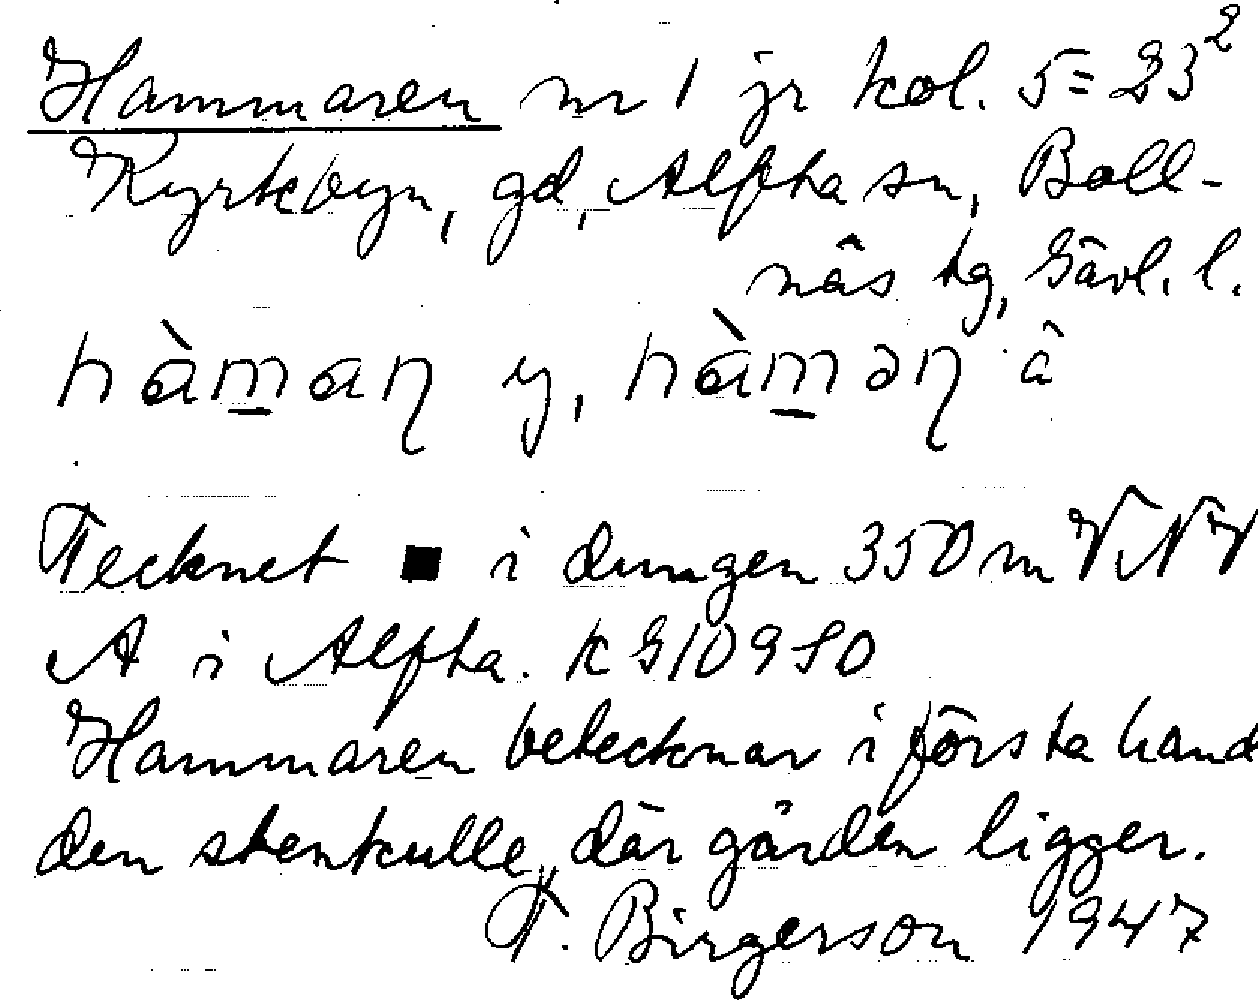 Hammaren nr 1 jr kol. 5 = 23²
Kyrkbyn, gd, Alfta sn, Boll-
näs tg, Gävl. l.
hàm̲aη y, hàm̲əη â
Tecknet ■ i dungen 350 m VNV
A i Alfta. K G10950
Hammaren betecknar i första hand
den stenkulle, där gården ligger.
T. Birgerson 1947